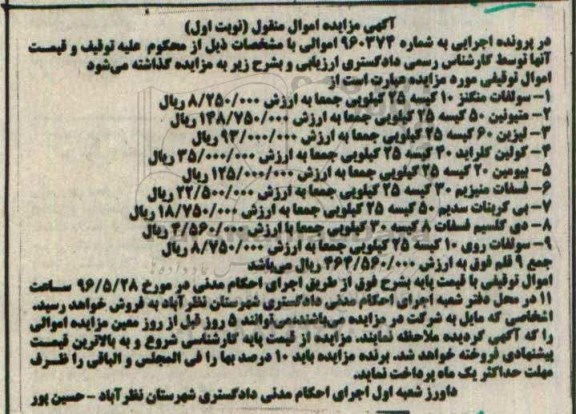 آگهی مزایده اموال منقول (نوبت اول)
در پرونده اجرایی به شماره ۹۶۰۳۷۴ اموالی با مشخصات ذیل از محکوم علیه توقیف و قیمت
آنها توسط کارشناس رسمی دادگستری ارزیابی و بشرح زیر به مزایده گذاشته میشود
اموال توقیفی مورد مزایده عبارت است از
۱- سولفات منگنز ۱۰ کیسه ۲۵ کیلویی جمعا به ارزش ۸/۲۵۰/۰۰۰ ریال
۲- متیونین ۵۰ کیسه ۲۵ کیلویی جمعا به ارزش ۱۴۸/۷۵۰/۰۰۰ ریال
۳- لیزین ۶۰ کیسه ۲۵ کیلویی جمعا به ارزش ۹۳/۰۰۰/۰۰۰ ریال
۴- کولین کلراید ۴۰ کیسه ۲۵ کیلویی جمعا به ارزش ۳۵/۰۰۰/۰۰۰ ریال
۵- بیومین ۲۰ کیسه ۲۵ کیلویی جمعا به ارزش ۱۲۵/۰۰۰/۰۰۰ ریال
۶- فسفات منیزیم ۳۰ کیسه ۲۵ کیلویی جمعا به ارزش ۲۲/۵۰۰/۰۰۰ ریال
۷- بی کربنات سدیم ۵۰ کیسه ۲۵ کیلویی جمعا به ارزش ۱۸/۷۵۰/۰۰۰ ریال
۸- دی کلسیم فسفات ۸ کیسه ۳۰ کیلویی جمعا با ارزش ۴/۵۶۰/۰۰۰ ریال
۹- سولفات روی ۱۰ کیسه ۲۵ کیلویی جمعا به ارزش ۸/۷۵۰/۰۰۰ ریال
جمع ۹ قلم فوق به ارزش ۴۶۴/۵۶۰/۰۰۰ ریال میباشد
اموال توقیفی با قیمت پایه بشرح فوق از طریق اجرای احکام مدنی در مورخ ۹۶/۵/۲۸ ساعت
۱۱ در محل دفتر شعبه اجرای احکام مدنی دادگستری شهرستان نظرآباد به فروش خواهد رسید.
اشخاصی که مایل به شرکت در مزایده میباشندمیتوانند ۵ روز قبل از روز معین مزایده اموالی
را که آگهی گردیده ملاحظه نمایند. مزایده از قیمت پایه کارشناسی شروع و به بالاترین قیمت
پیشنهادی فروخته خواهد شد. برنده مزایده باید ۱۰ درصد بها را فی المجلس و الباقی را ظرف
مهلت حداکثر یک ماه پرداخت نماید.
داورز شعبه اول اجرای احکام مدنی دادگستری شهرستان نظرآباد - حسین پور